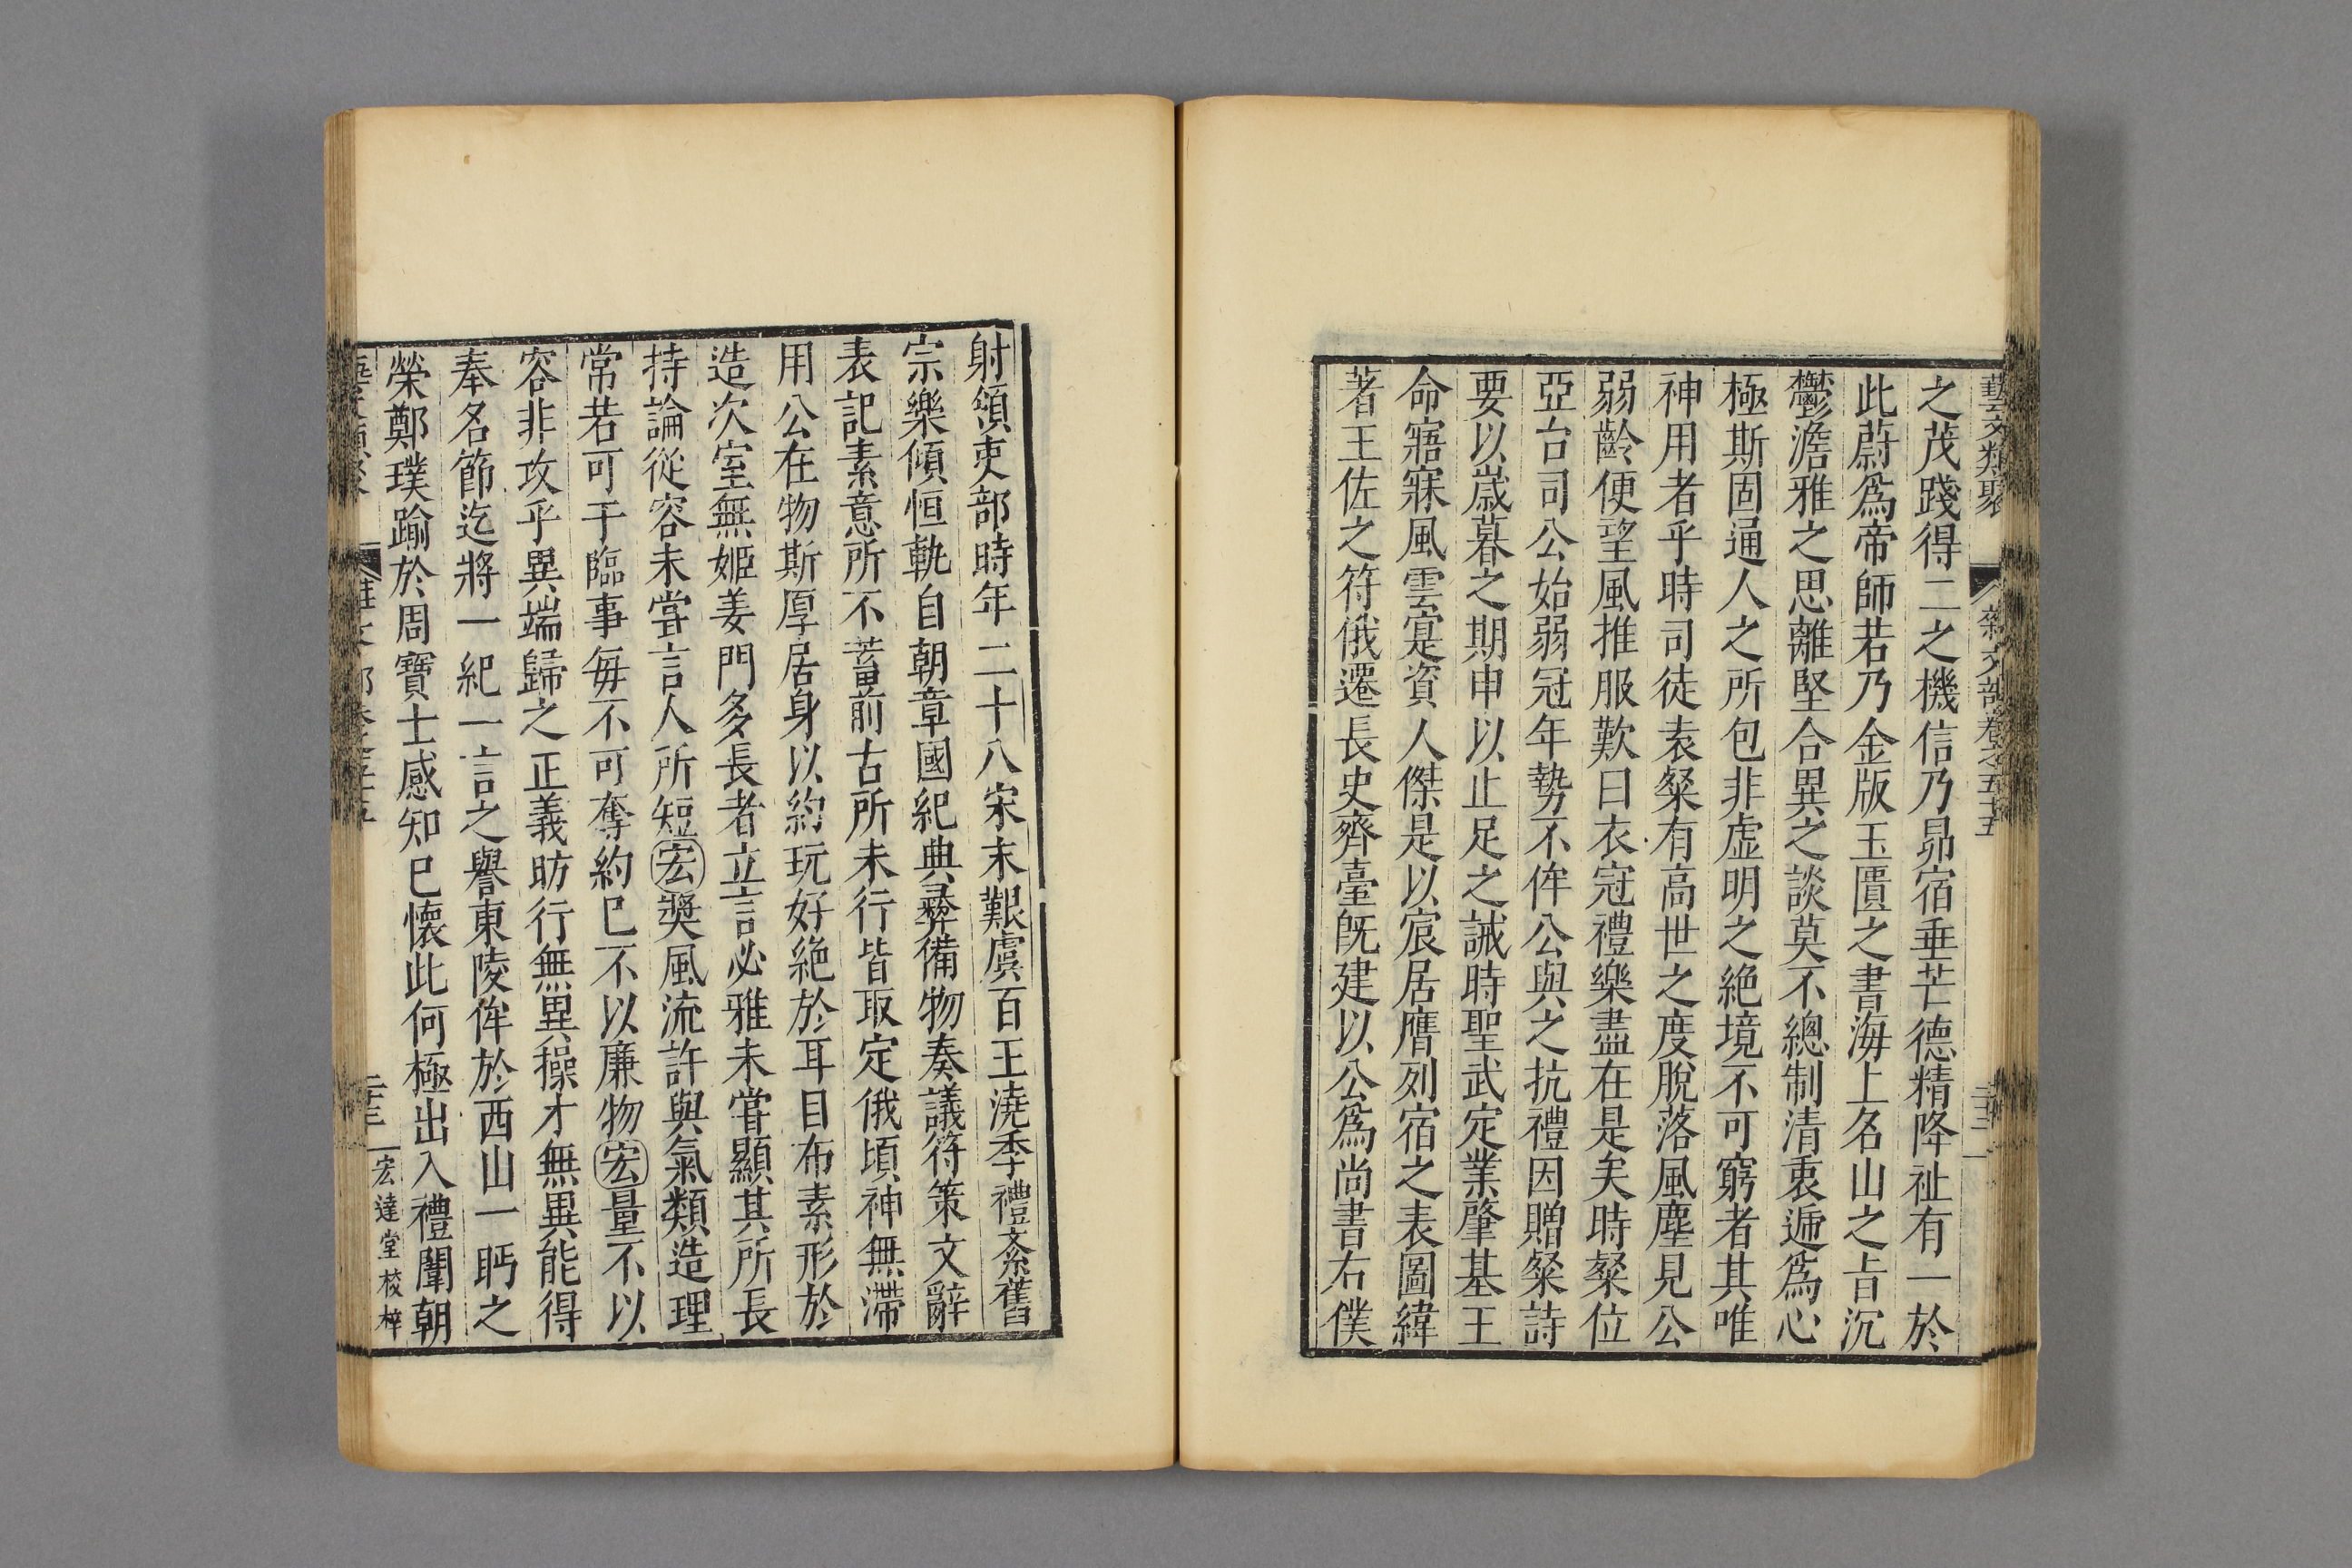 藝文類聚
雜文部卷之五十五
之茂踐得二之機信乃昴宿垂芒德精降祉有一於
此蔚爲帝師若乃金版玉匱之書海上名山之旨沉
鬱澹雅之思離堅合異之談莫不總制清衷遞爲心
極斯固通人之所包非虛明之絕境不可窮者其唯
神用者乎時司徒袁粲有高世之度脫落風塵見公
弱齡便望風推服歎曰衣冠禮樂盡在是矣時粲位
亞台司公始弱冠年勢不侔公與之抗禮因贈粲詩
要以歲暮之期申以止足之誡時聖武定業肇基王
命寤寐風雲寔資人傑是以宸居膺列宿之表圖緯
著王佐之符俄遷長史齊臺旣建以公爲尚書右僕
射領吏部時年二十八宋末艱虞百王澆季禮紊舊
宗樂傾恒軌自朝章國紀典彝備物奏議符策文辭
表記素意所不蓄前古所未行皆取定俄頃神無滯
用公在物斯厚居身以約玩好絕於耳目布素形於
造次室無姬姜門多長者立言必雅未嘗顯其所長
持論從容未嘗言人所短宏奬風流許與氣類造理
常若可干臨事每不可奪約已不以廉物宏量不以
容非攻乎異端歸之正義昉行無異操才無異能得
奉名節迄將一紀一言之譽東陵侔於西山一眄之
榮鄭璞踰於周寶士感知已懷此何極出入禮闈朝
宏達堂校梓